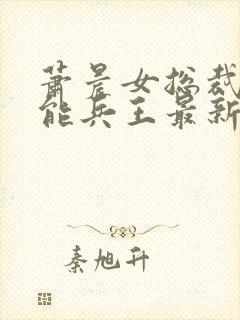 萧晨女总裁
能兵王最新
秦旭升